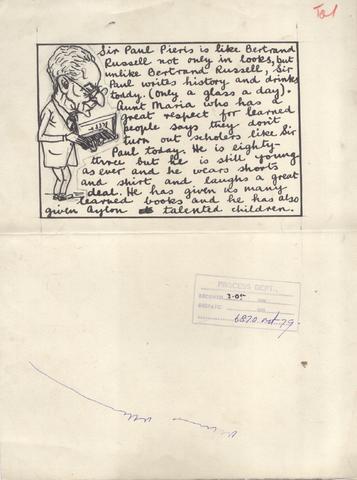 Sir Paul Pieris is like Bertrand
Russell not only in looks, but
unlike Bertrand Russell, Sir
Paul writes history and drinks
toddy (only a glass a day).
Aunt Maria who has a
great respect for learned
people says they don't
turn out scholers like Sir
Paul today. He is eighty-
three but he is still young
as ever and he wears shorts
and shirt, and laughs a great
deal. He has given us many
learned books and he has also
given Aylon talented children.
PROCESS DEPT.,
RECEIVED 3.05